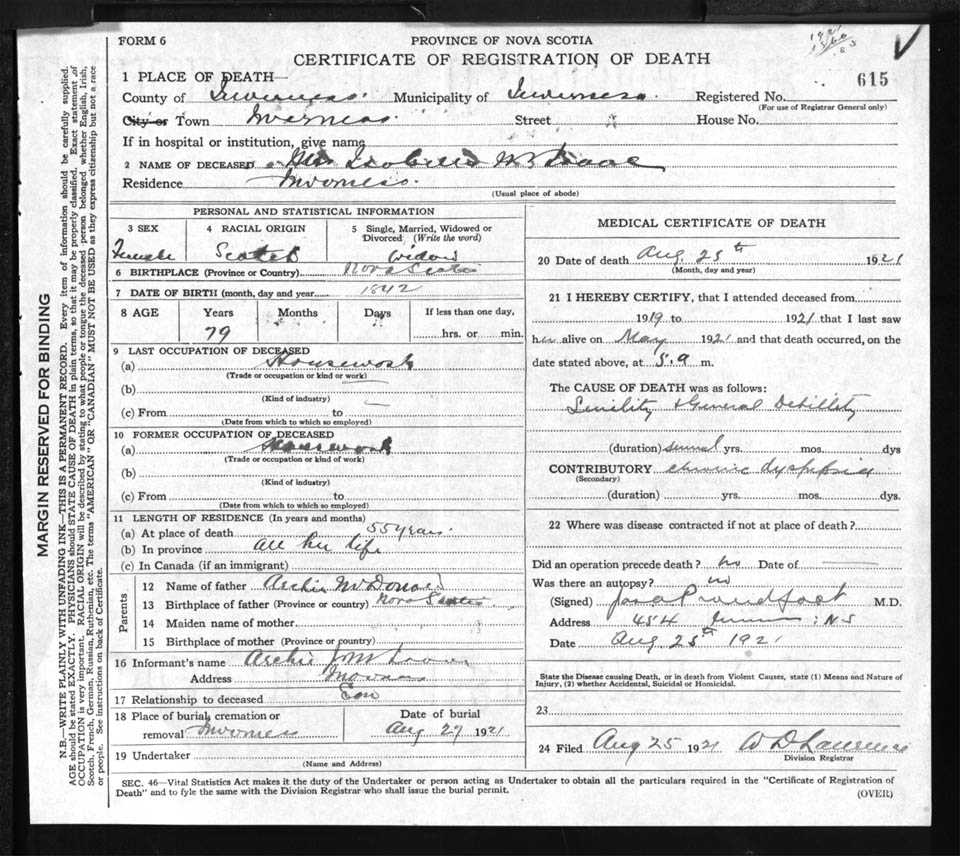 FORM 6
PROVINCE OF NOVA SCOTIA
CERTIFICATE OF REGISTRATION OF DEATH
615
1 PLACE OF DEATH—
County of Inverness. Municipality of Inverness. Registered No.
(For use of Registrar General only)
City or Town Inverness. Street House No.
If in hospital or institution, give name
2 NAME OF DECEASED Mrs Isabella McIsaac
Residence Inverness.
(Usual place of abode)
PERSONAL AND STATISTICAL INFORMATION
3 SEX
Female
4 RACIAL ORIGIN
Scotch
5 Single, Married, Widowed or Divorced (Write the word)
Widow
6 BIRTHPLACE (Province or Country) Nova Scotia
7 DATE OF BIRTH (month, day and year) 1842
8 AGE Years Months Days If less than one day,
79 hrs. or min.
9 LAST OCCUPATION OF DECEASED
(a) Housework
(Trade or occupation or kind or work)
(b)
(Kind of industry)
(c) From to
(Date from which to which so employed)
10 FORMER OCCUPATION OF DECEASED
(a) Housework
(Trade or occupation or kind of work)
(b)
(Kind of industry)
(c) From to
(Date from which to which so employed)
11 LENGTH OF RESIDENCE (In years and months)
(a) At place of death 55 years.
(b) In province all her life
(c) In Canada (if an immigrant)
Parents
12 Name of father Archie McDonald
13 Birthplace of father (Province or country) Nova Scotia
14 Maiden name of mother
15 Birthplace of mother (Province or country)
16 Informant's name Archie J McIsaac
Address Inverness
17 Relationship to deceased Son
18 Place of burial, cremation or removal Inverness
Date of burial
Aug 27 1921
19 Undertaker
(Name and Address)
MEDICAL CERTIFICATE OF DEATH
20 Date of death Aug. 25th 1921
(Month, day and year)
21 I HEREBY CERTIFY, that I attended deceased from
1919 to 1921 that I last saw
her alive on May 1921 and that death occurred, on the
date stated above, at 5.a m.
The CAUSE OF DEATH was as follows:
Senility & General Debility
(duration) several yrs. mos. dys
CONTRIBUTORY chronic dyspepsia
(Secondary)
(duration) yrs. mos. dys.
22 Where was disease contracted if not at place of death?
Did an operation precede death? no Date of
Was there an autopsy? no
(Signed) Proudfoot M.D.
Address 454 N S
Date Aug 25th 1921
State the Disease causing Death, or in death from Violent Causes, state (1) Means and Nature of Injury, (2) whether Accidental, Suicidal or Homicidal.
23
24 Filed Aug 25 1921 W D Lawrence
Division Registrar
SEC. 46—Vital Statistics Act makes it the duty of the Undertaker or person acting as Undertaker to obtain all the particulars required in the "Certificate of Registration of
Death" and to fyle the same with the Division Registrar who shall issue the burial permit.
(OVER)
MARGIN RESERVED FOR BINDING
N.B.—WRITE PLAINLY WITH UNFADING INK—THIS IS A PERMANENT RECORD. Every item of information should be carefully supplied.
AGE should be stated EXACTLY. PHYSICIANS should STATE CAUSE OF DEATH in plain terms, so that it may be properly classified. Exact statement of
OCCUPATION is very important. RACIAL ORIGIN will be described by stating to what people or tongue the deceased person belonged whether English, Irish,
Scotch, French, German, Russian, Ruthenian, etc. The terms "AMERICAN" OR "CANADIAN" MUST NOT BE USED as they express citizenship but not a race
or people. See instructions on back of Certificate.